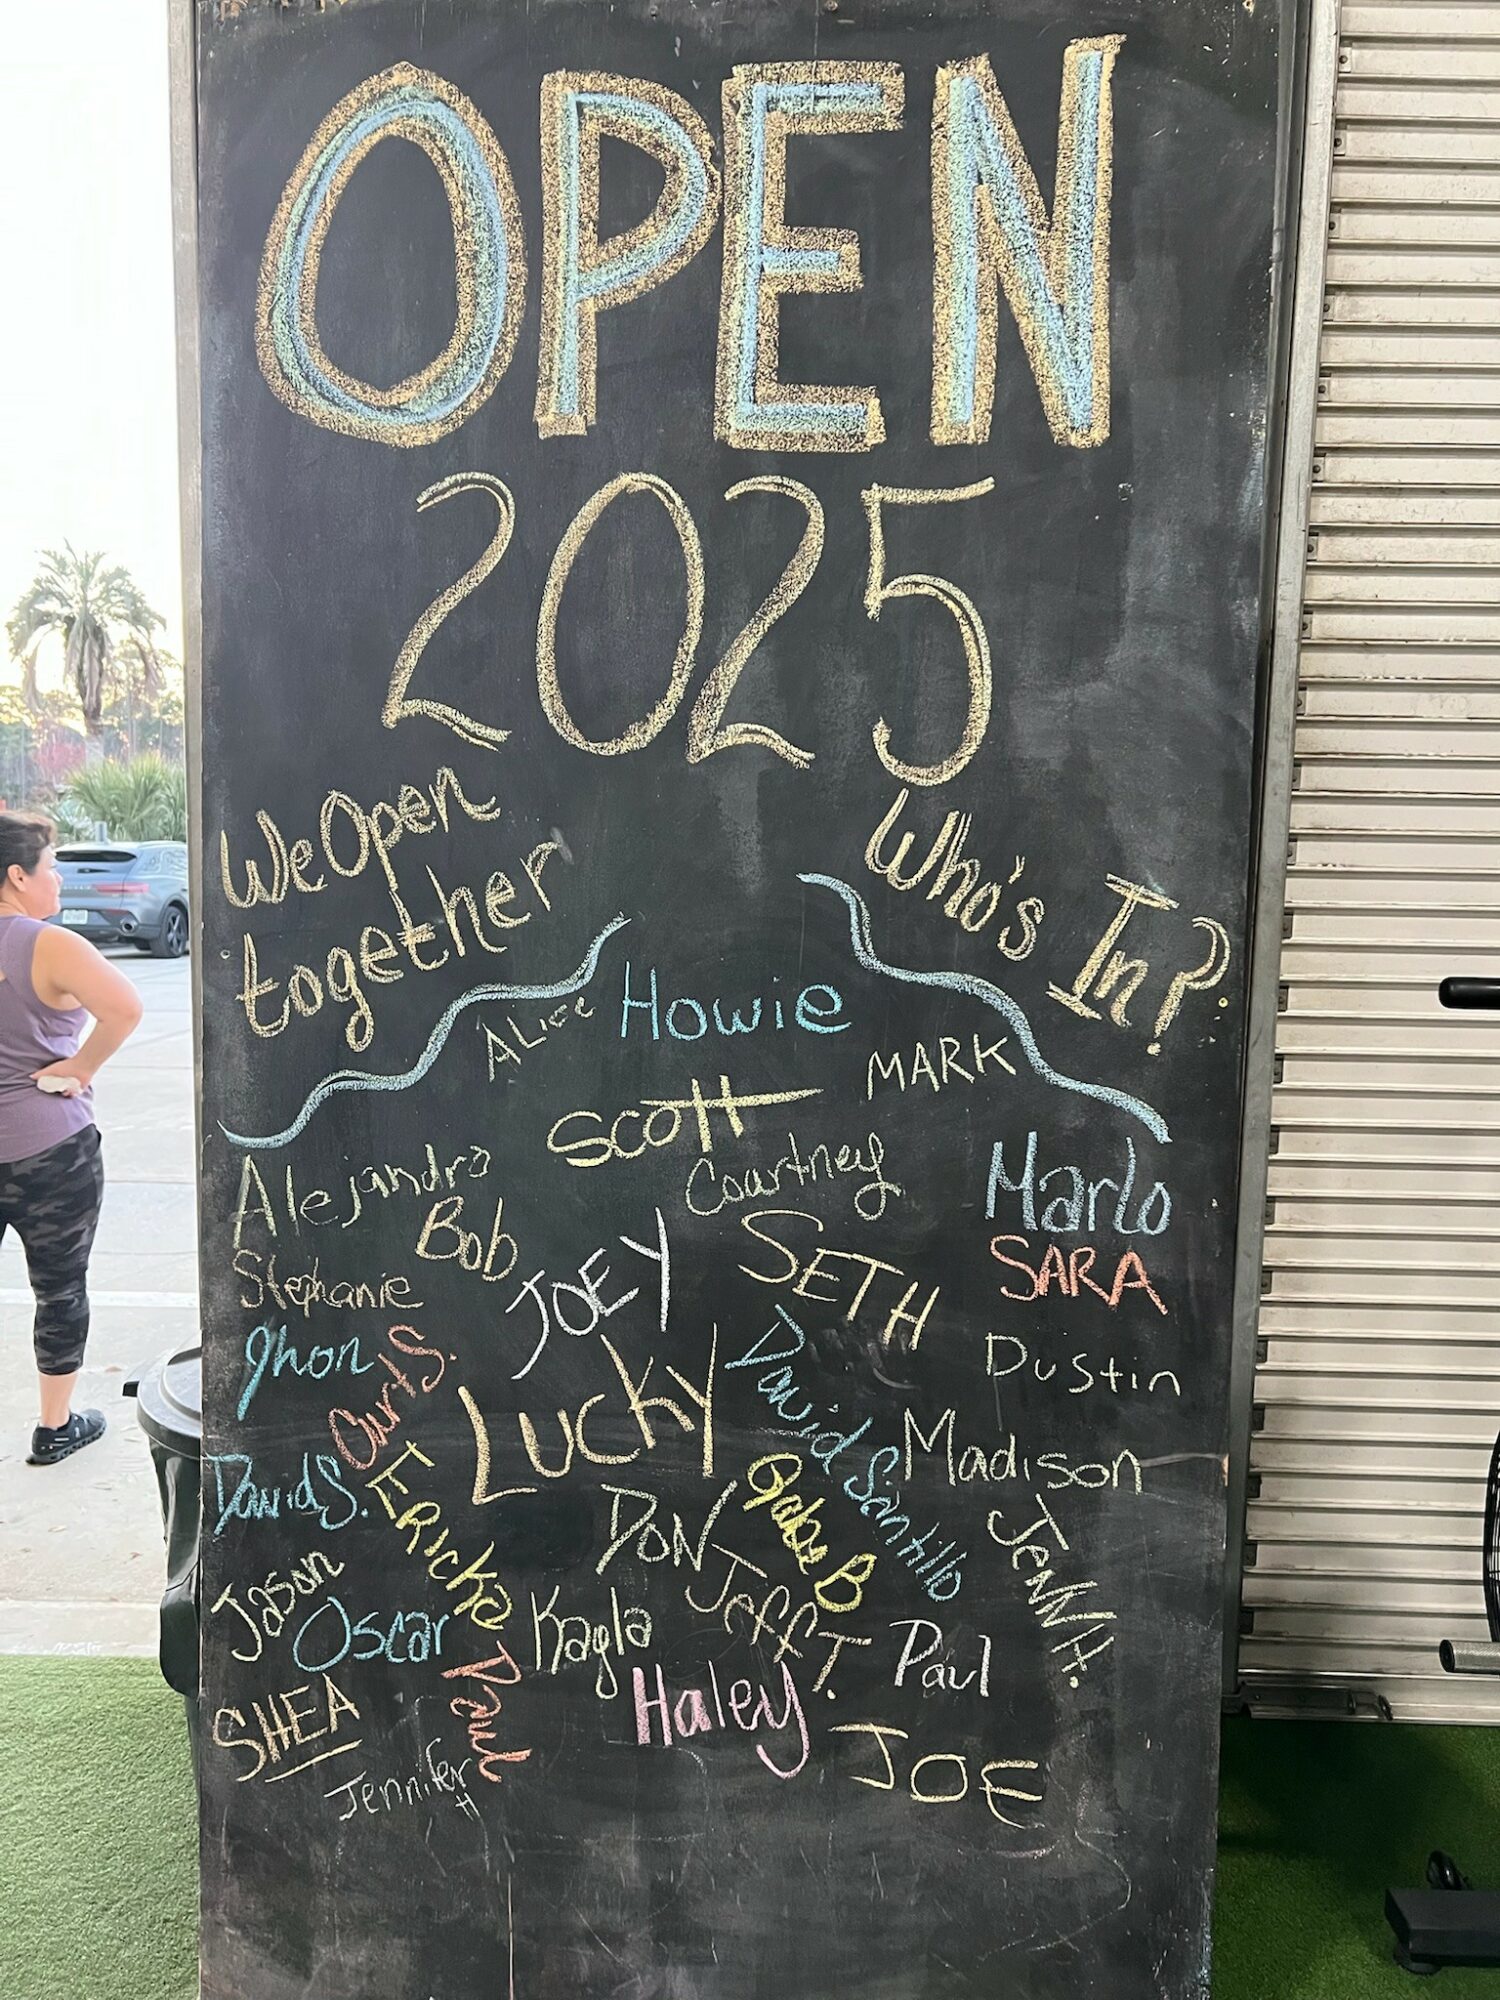 OPEN
2025
We Open
together
Who's In?
Alice
Howie
MARK
Scott
Alejandro
Courtney
Marlo
Bob
Stephanie
JOEY
SETH
SARA
Jhon
Curt S.
Lucky
David Santillo
Dustin
Madison
David S.
ERicka
DON
Gabe B
JENN H.
Jason
Oscar
Kayla
Jeff T.
Paul
Paul
Haley
SHEA
JOE
Jennifer
H